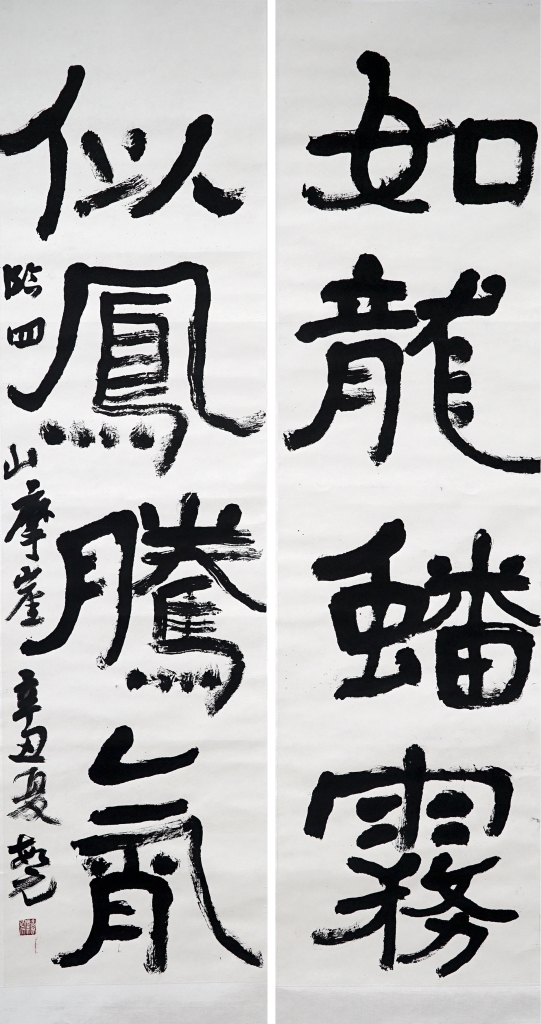 如龍蟠霧
似鳳騰氣
臨四山摩崖辛丑夏